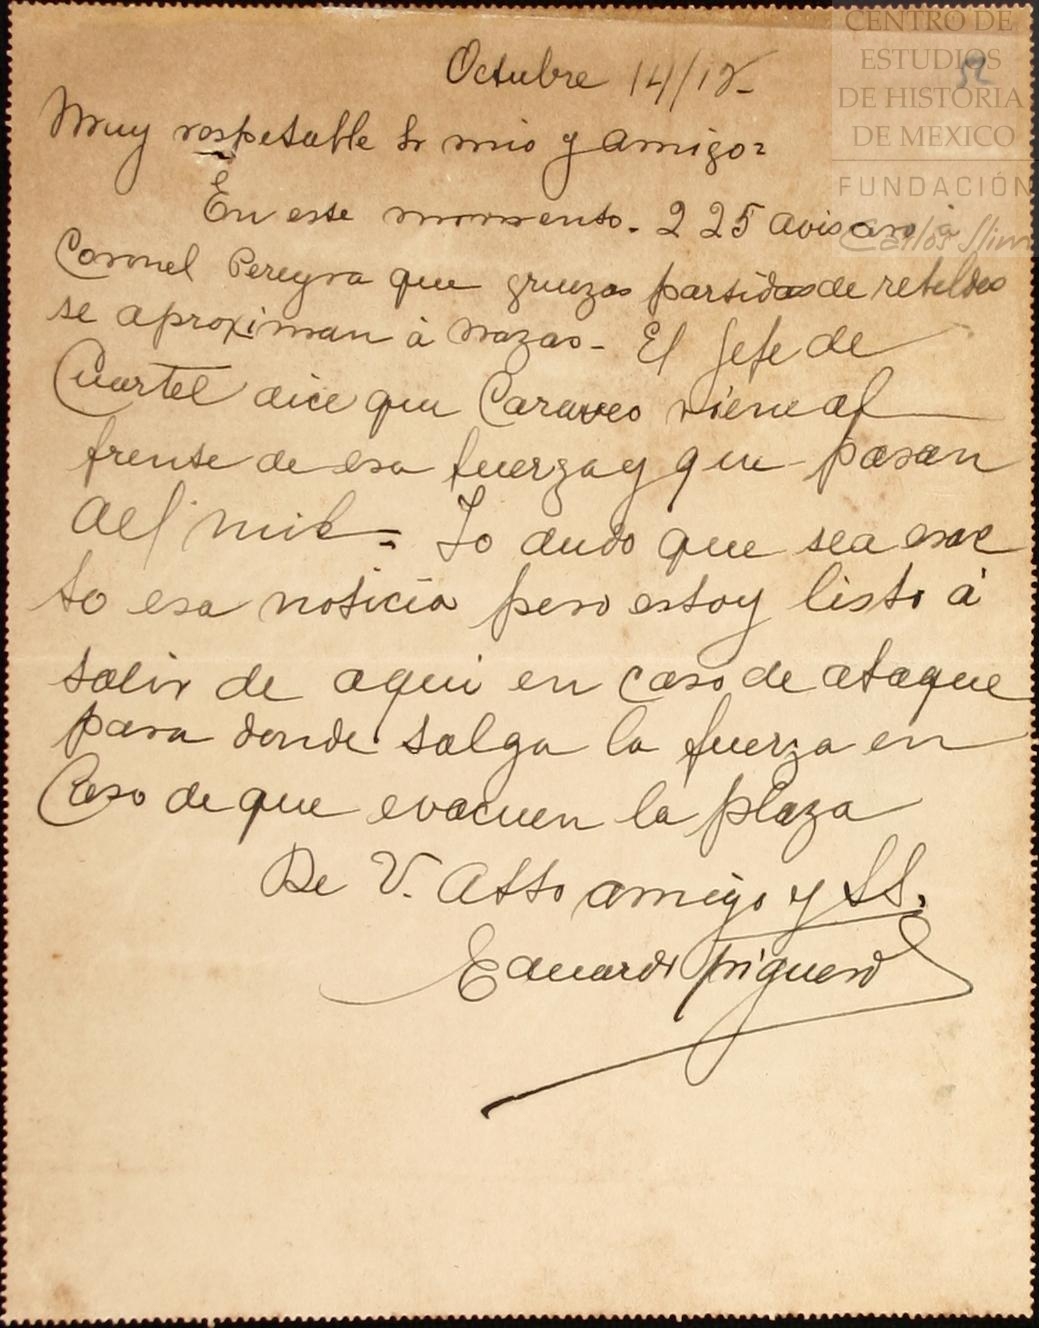 CENTRO DE
ESTUDIOS
DE HISTORIA
DE MEXICO
FUNDACIÓN
Carlos Slim
52
Octubre 14/12-
Muy respetable Sr mio y amigo=
En este momento- 2 25 avisaron á
Coronel Pereyra que gruezas partidas de rebeldes
se aproximan á Nazas- El Jefe de
Cuartel dice que Caraveo viene al
frente de esa fuerza y que pasan
del mil= Lo dudo que sea exac
to esa noticia pero estoy listo á
salir de aqui en caso de ataque
para donde salga la fuerza en
Caso de que evacuen la plaza
De V. Atto amigo y SS.
Eduardo Triguero